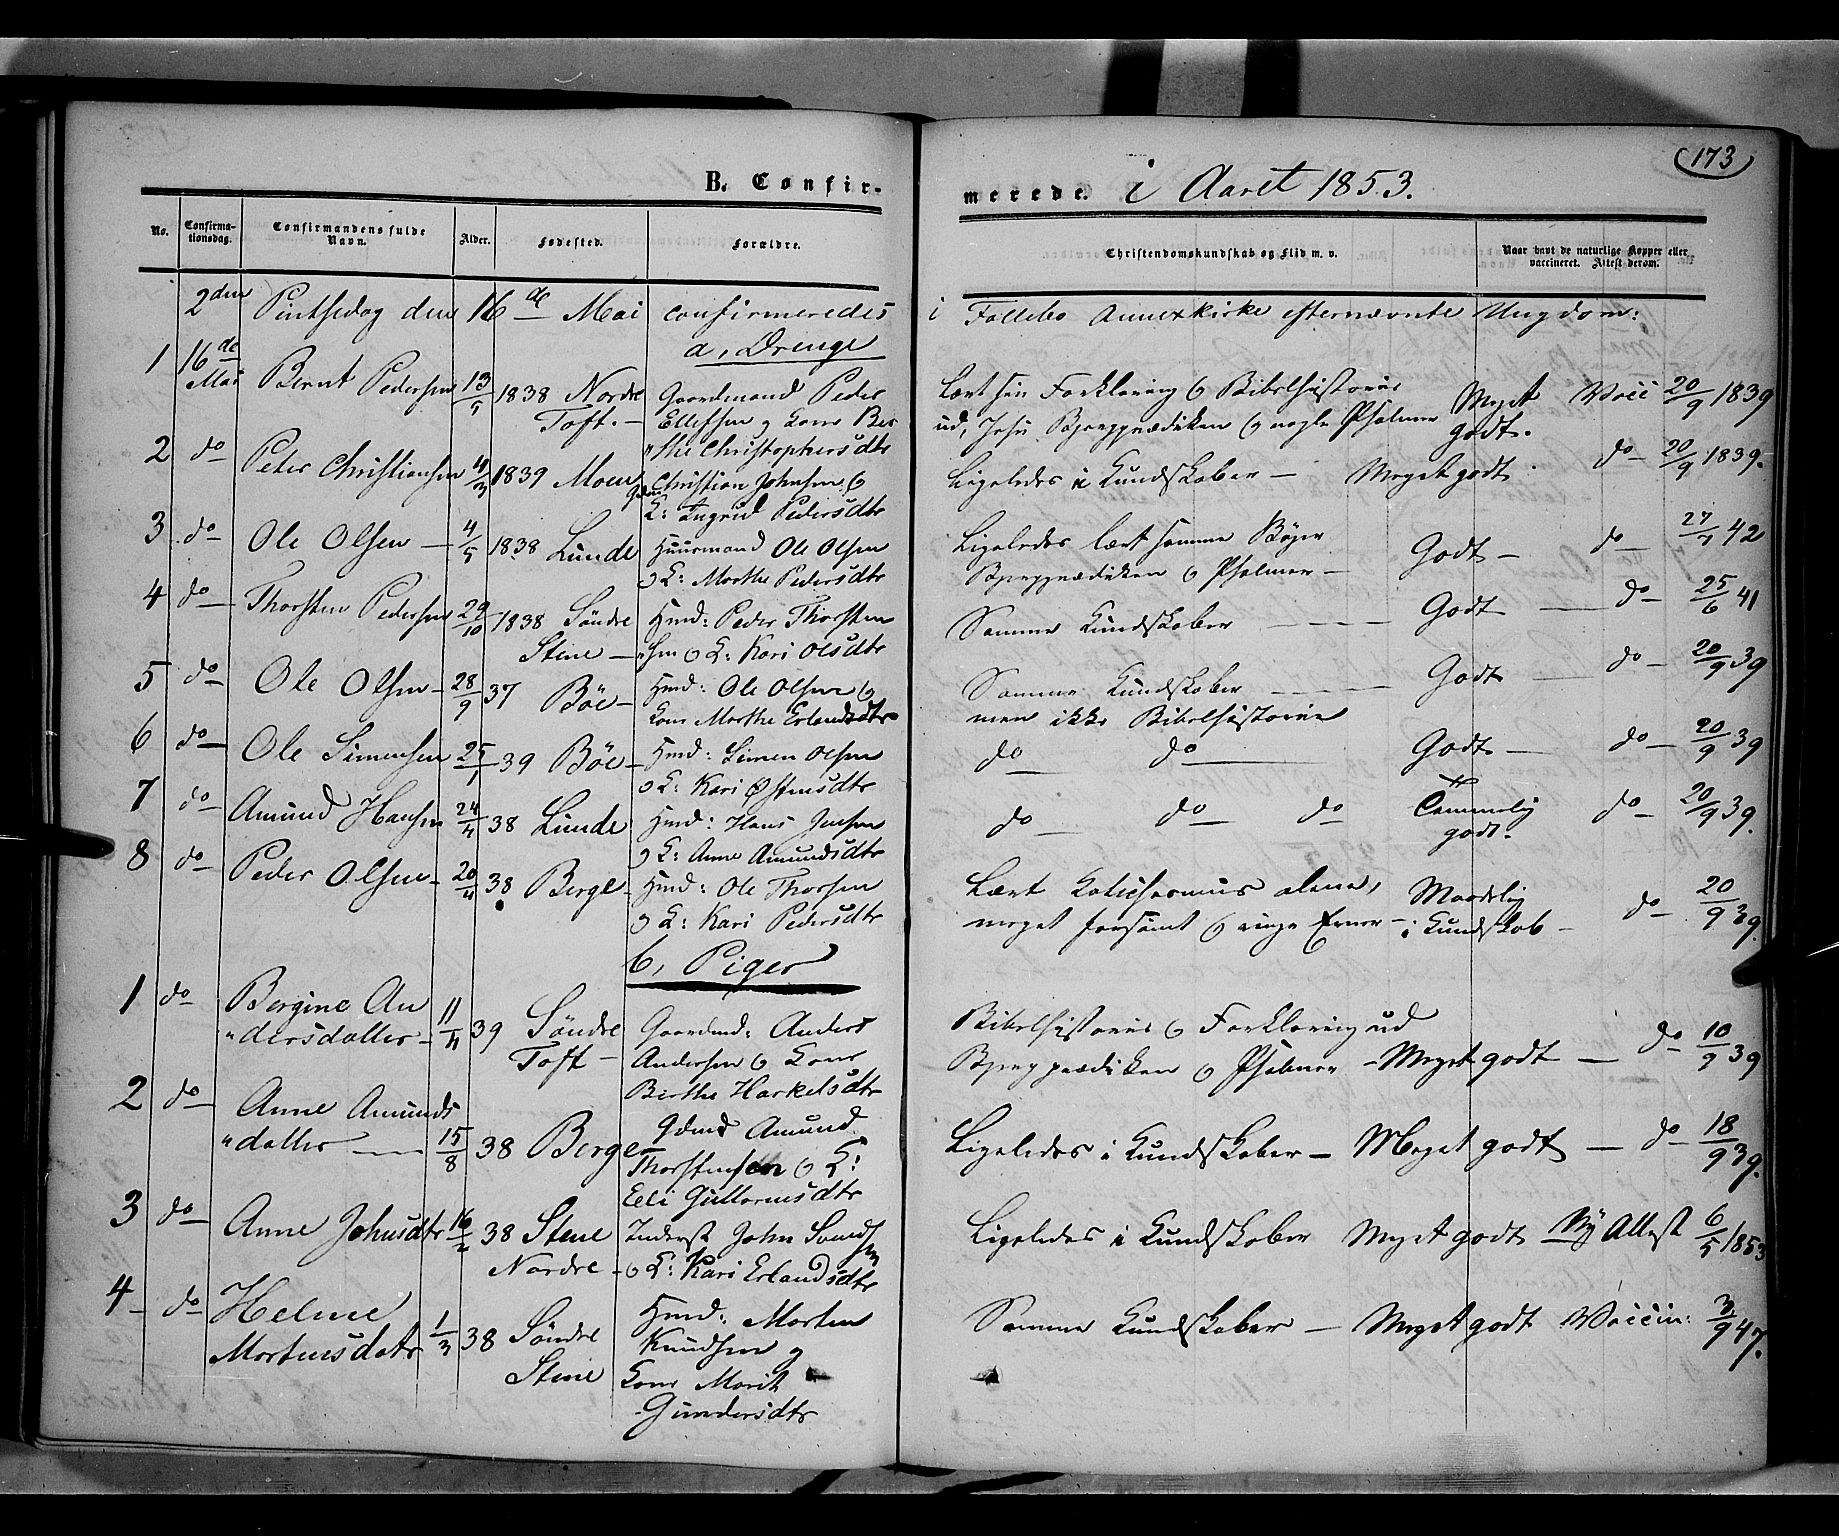 173
B. Confirmerede. i Aaret 1853.
No. Confirmationsdag. Confirmandens fulde Navn. Alder. Fødested. Forældre. Christendomskundskab og Flid m. v. Naar havt de naturlige Kopper eller vaccineret. Attest derom.
2den Pintsedag den 16de Mai confirmeredes i Follebo Annexkirke efternævnte Ungdom:
a, Drenge
1 16de Mai Bernt Pedersen 13/5 1838 Nordre Toft. — Gaardmand Peder Ellefsen og Kone Berthe Christophersdtr
Lært sin Forklaring & Bibelhistorie ud, Jesu Bjergprædiken & nogle Psalmer Meget godt. Vacc 20/9 1839
2 do Peter Christiansen 4/3 1839 Moen Gdm Christian Johnsen & K: Ingrid Pedersdtr
Ligeledes i Kundskaber — Meget godt. do — 20/9 1839.
3 do — Ole Olsen — 4/5 1838 Lunde Huusmand Ole Olsen & K: Marthe Pedersdtr
Ligeledes lært samme Bøger Bjergprædiken & Psalmer — Godt — do — 27/7 42
4 do — Thorsten Pedersen 29/10 1838 Söndre Stine — Hmd: Peder Thorstensen & K: Kari Olsdtr
Samme Kundskaber — Godt — do — 25/6 41
5 do — Ole Olsen — 28/9 37 Böe — Hmd: Ole Olsen & Kone Marthe Erlandsdtr
Samme Kundskaber men ikke Bibelhistorie — Godt — do — 20/9 39
6 do — Ole Simensen 25/1 39 Böe — Hmd: Simen Olsen & K: Kari Østensdtr
do — do — Godt — do — 20/9 39
7 do — Amund Hansen 24/4 38 Lunde Hmd: Hans Jensen & K: Anne Amundsdtr
do — do — do Temmelig godt. do — 20/9 39.
8 do — Peder Olsen — 20/4 38 Berge — Hmd: Ole Thorsen & K: Kari Pedersdtr
Lært Katechismus alene, meget forsømt & ringe Evner — Maadelig i Kundskab — do — 20/9 39.
b, Piger
1 do Bergine Andersdatter — 11/4 39 Söndre Toft — Gaardmd: Anders Andersen & Kone Birthe Harkelsdtr
Bibelhistorie & Forklaring ud Bjergprædiken & Psalmer — Meget godt — do — 10/9 39
2 do — Anne Amundsdatter — 15/8 38 Berge — Gdmd Amund Thorstensen & K: Eli Guttormsdtr
Ligeledes i Kundskaber — Meget godt — do — 18/9 39.
3 do — Anne Johnsdtr 16/2 38 Stine Nordre — Inderst John Svendsen & K: Kari Erlandsdtr
Ligeledes i Kundskaber Meget godt Ny Attest 6/5 1853
4 — do — Helene Mortensdatr 1/3 38 Söndre Stine Hmd: Morten Knudsen & Kone Marit Gundersdtr
Samme Kundskaber — Meget godt Vaccin: 3/9 47.